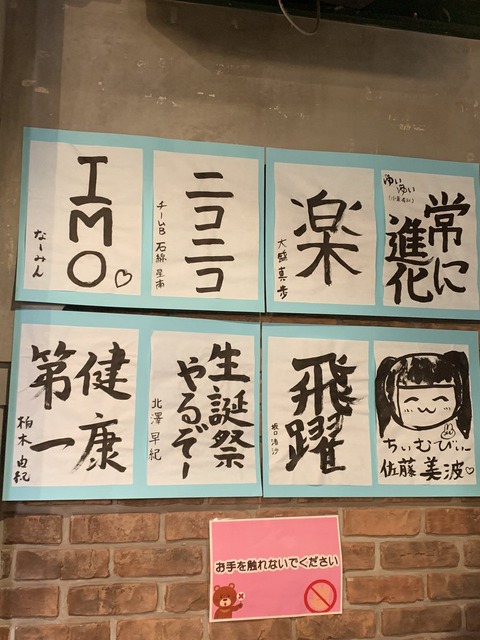 IMO♡
なーみん
ニコニコ
チームB 石綿 星南
楽
大盛 真歩
ゆいゆい
(小栗有以)
常に
進化
健康
第一
柏木 由紀
生誕祭
やるぞー
北澤 早紀
飛躍
坂口 渚沙
ちぃむびぃー
佐藤 美波♡
お手を触れないでください